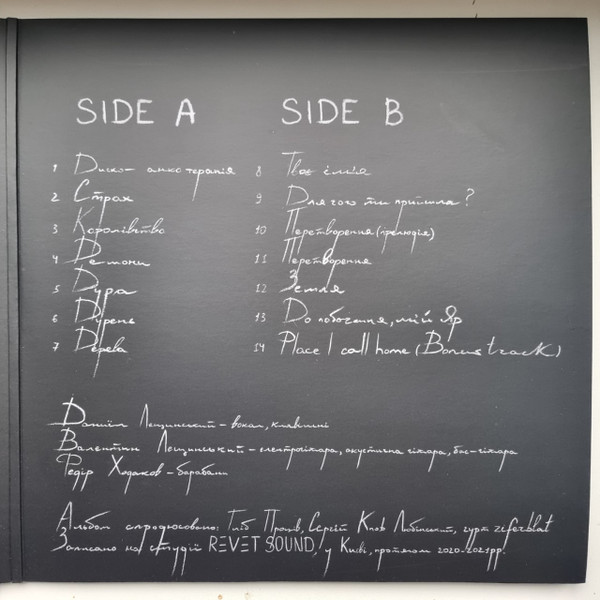 SIDE A
1 Диско-алко терапія
2 Страх
3 Королівство
4 Демони
5 Дура
6 Дурень
7 Дерева
SIDE B
8 Твоє ім'я
9 Для чого ти прийшла?
10 Перетворення (прелюдія)
11 Перетворення
12 Земля
13 До побачення, мій Яр
14 Place I call home (Bonus track)
Даниїл Лещинський - вокал, клавішні
Валентин Лещинський - електрогітара, акустична гітара, бас-гітара
Федір Ходаков - барабани
Альбом спродюсовано: Гліб, Сергій Кноб Любінський, гурт zeferblat
Записано на студії REVET SOUND, у Києві, протягом 2020-2021рр.